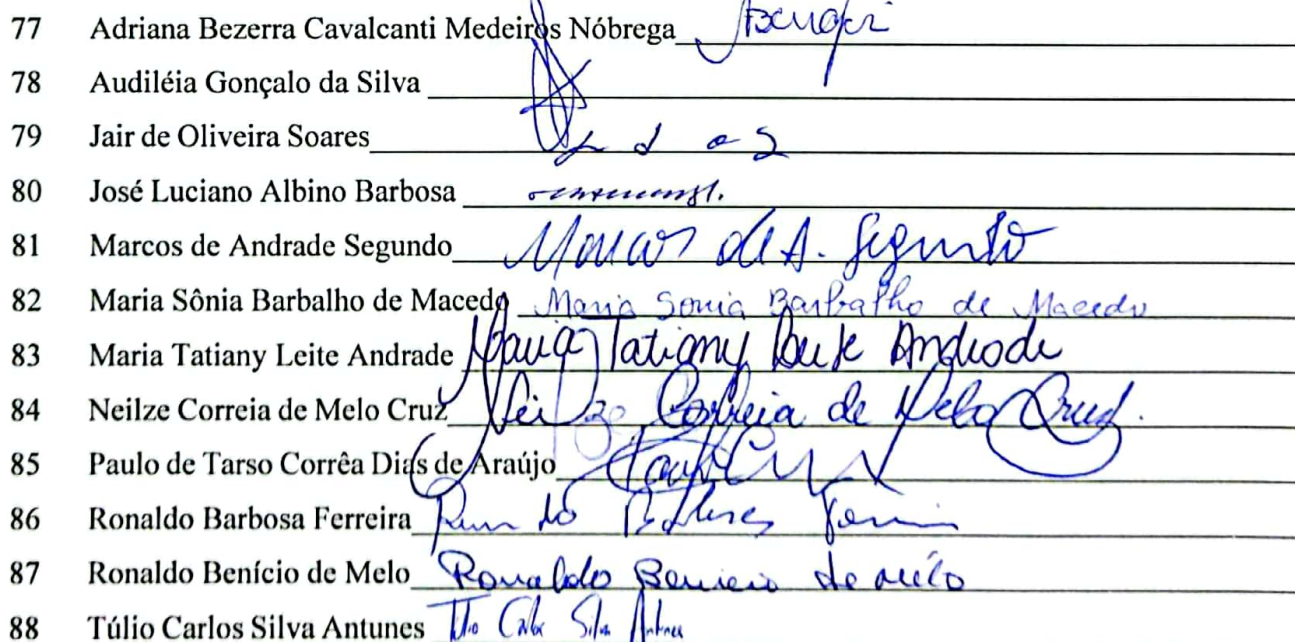 77 Adriana Bezerra Cavalcanti Medeiros Nóbrega
78 Audiléia Gonçalo da Silva
79 Jair de Oliveira Soares
80 José Luciano Albino Barbosa
81 Marcos de Andrade Segundo Marcos de A. Segundo
82 Maria Sônia Barbalho de Macedo Maria Sonia Barbalho de Macedo
83 Maria Tatiany Leite Andrade Maria Tatiany Leite Andrade
84 Neilze Correia de Melo Cruz Neilze Correia de Melo Cruz.
85 Paulo de Tarso Corrêa Dias de Araújo
86 Ronaldo Barbosa Ferreira
87 Ronaldo Benício de Melo Ronaldo Benicio de Melo
88 Túlio Carlos Silva Antunes Túlio Carlos Silva Antunes